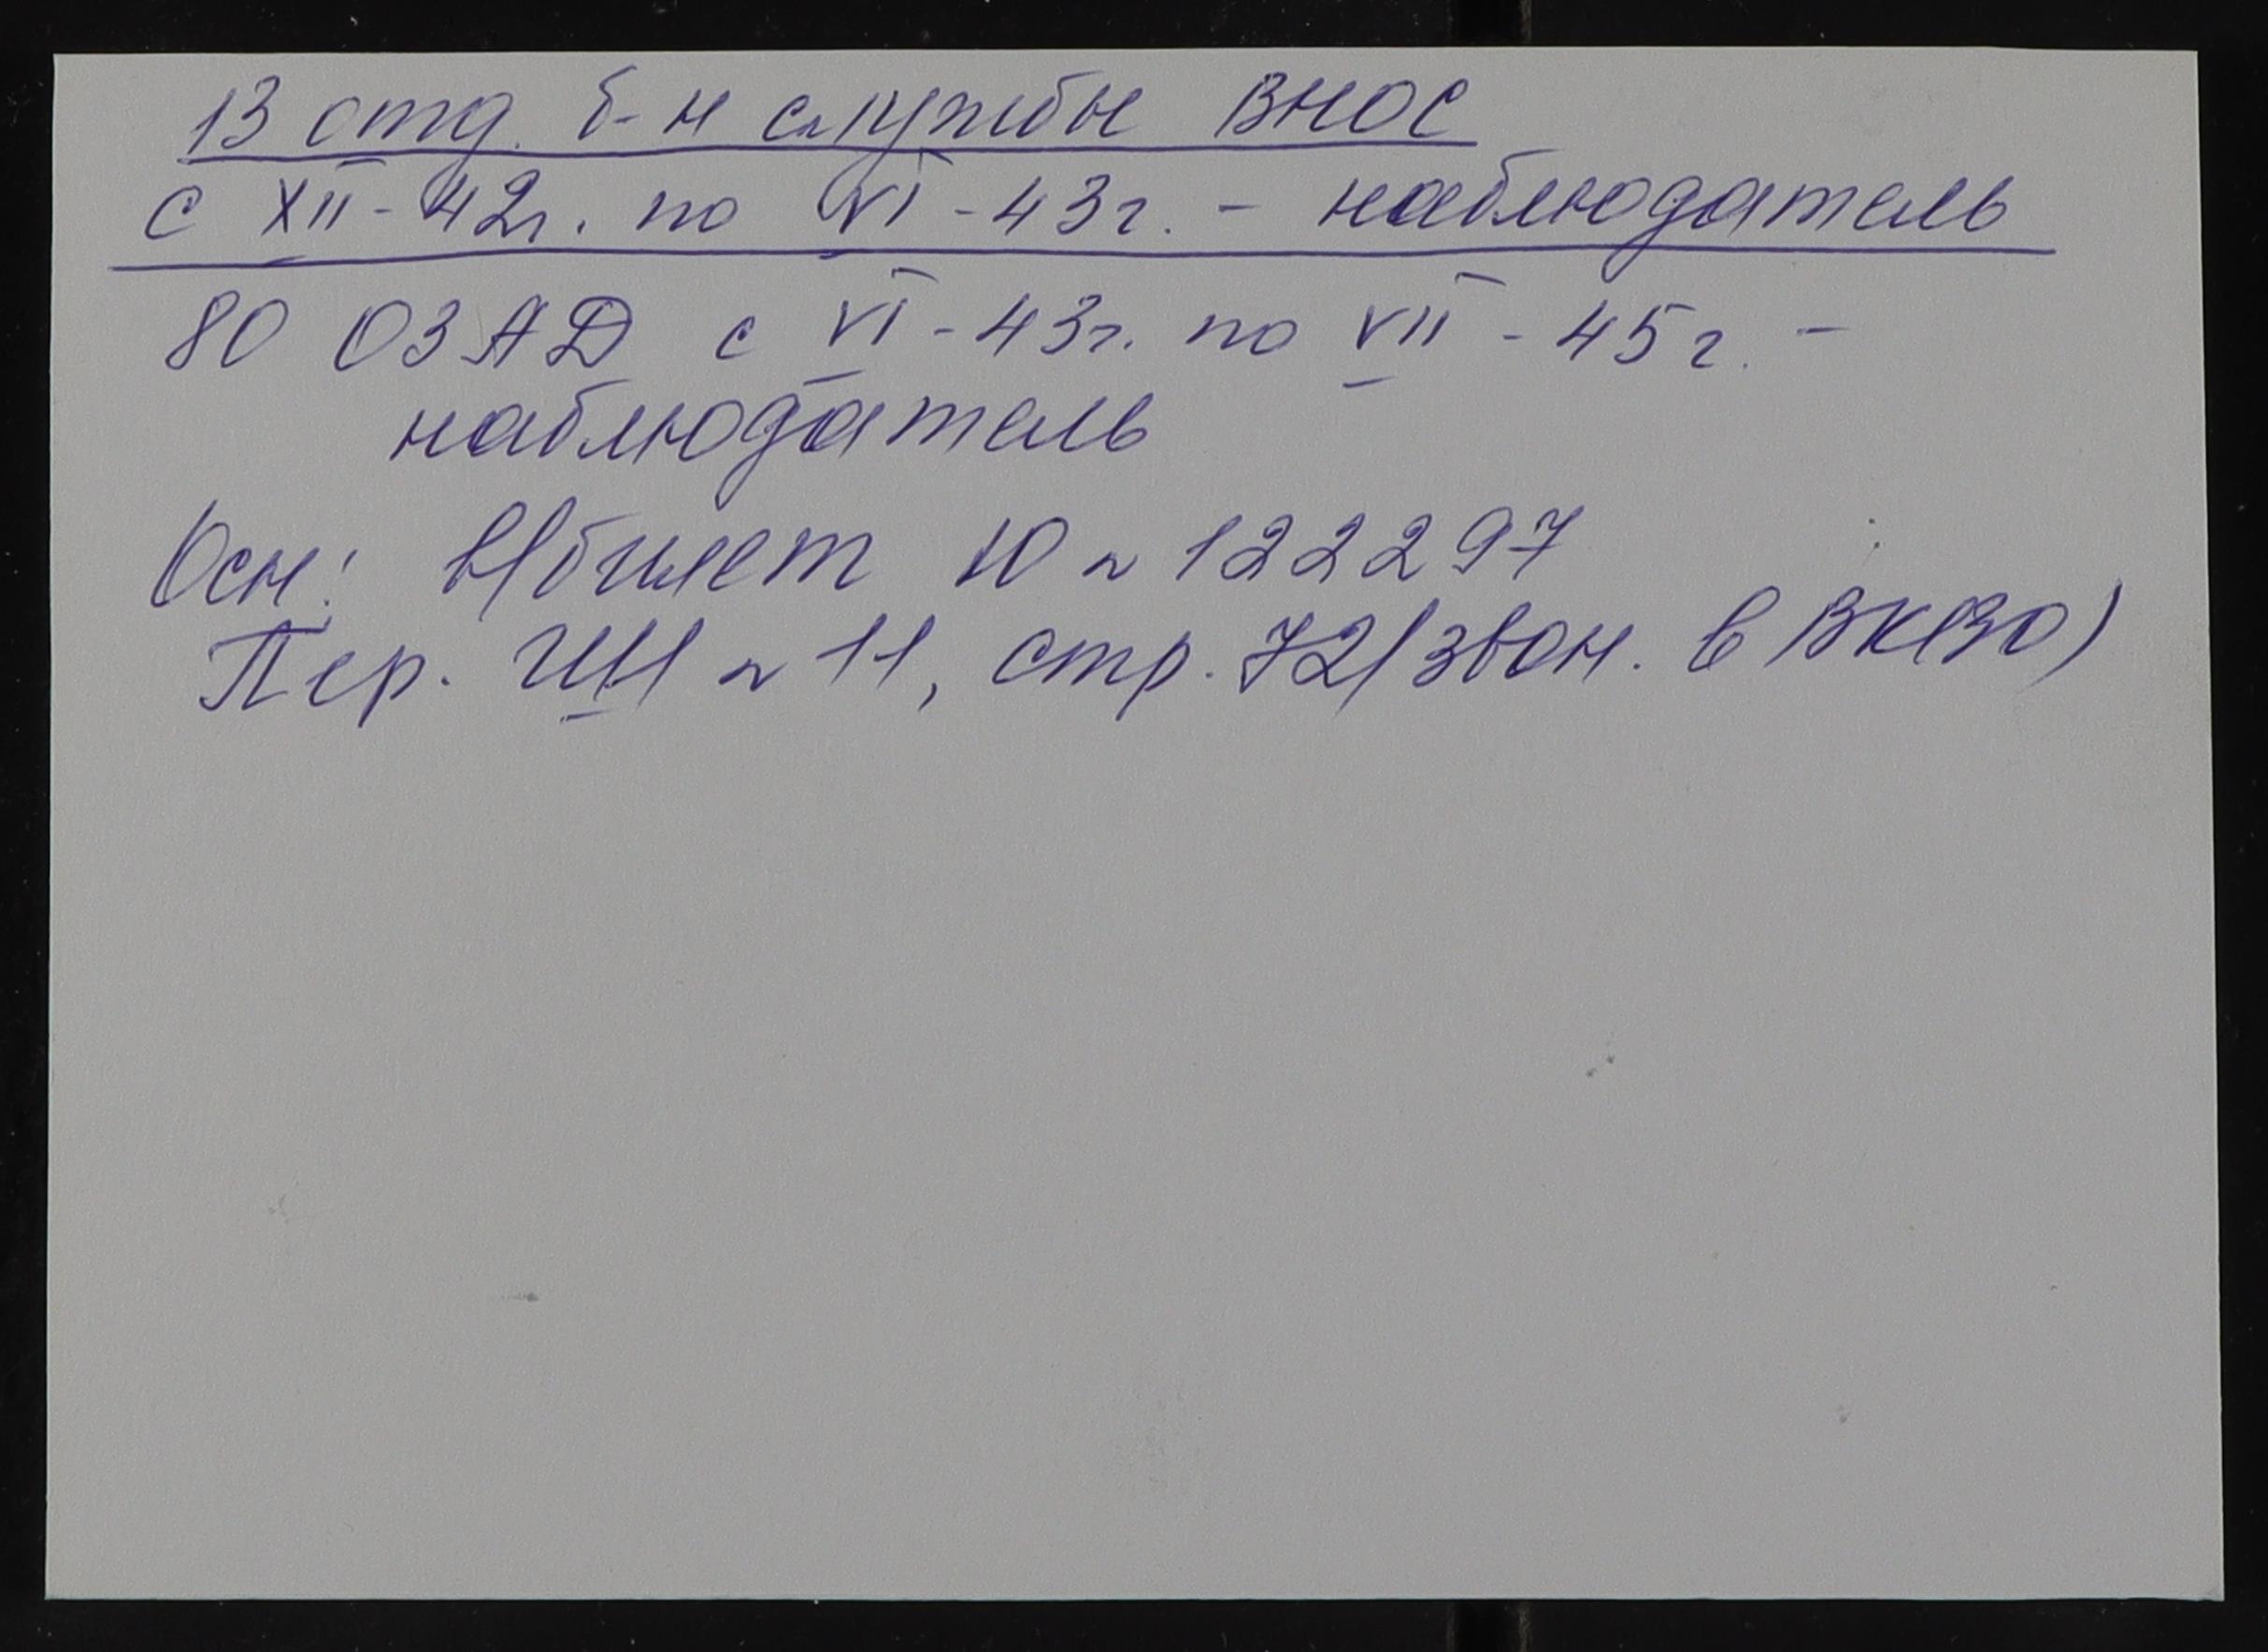 13 отд. б-н службы ВНОС
с XII-42г. по VI-43г. - наблюдатель
80 ОЗАД с VI-43г. по VII-45г. -
наблюдатель
Осн: в/билет Ю № 122297
Пер. ГШ № 11, стр. 72 (звон. в ВК(ВО)